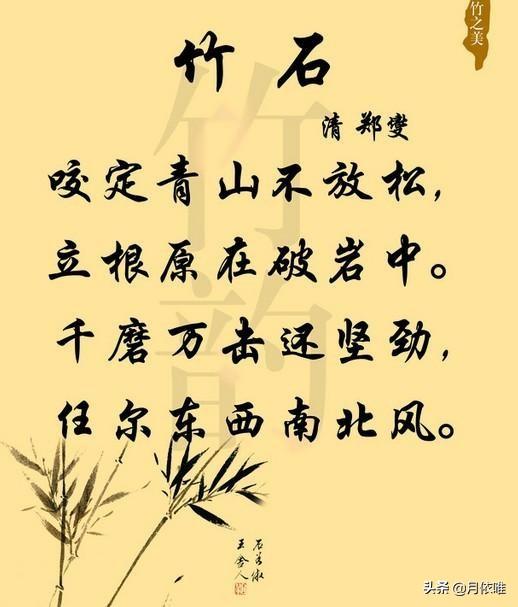 竹之美
竹石
清 郑燮
竹韵
咬定青山不放松，
立根原在破岩中。
千磨万击还坚劲，
任尔东西南北风。
头条@月依唯